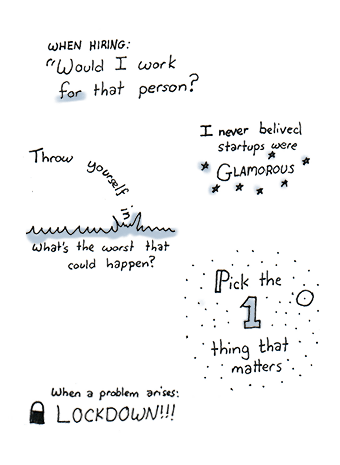 WHEN HIRING:
"Would I work
for that person?
I never belived
startups were
GLAMOROUS
Throw yourself in
What's the worst that
could happen?
Pick the
1
thing that
matters
When a problem arises:
LOCKDOWN!!!